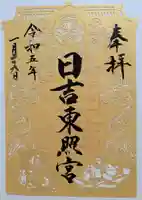 奉拝
日吉東照宮
令和五年
一月十九日